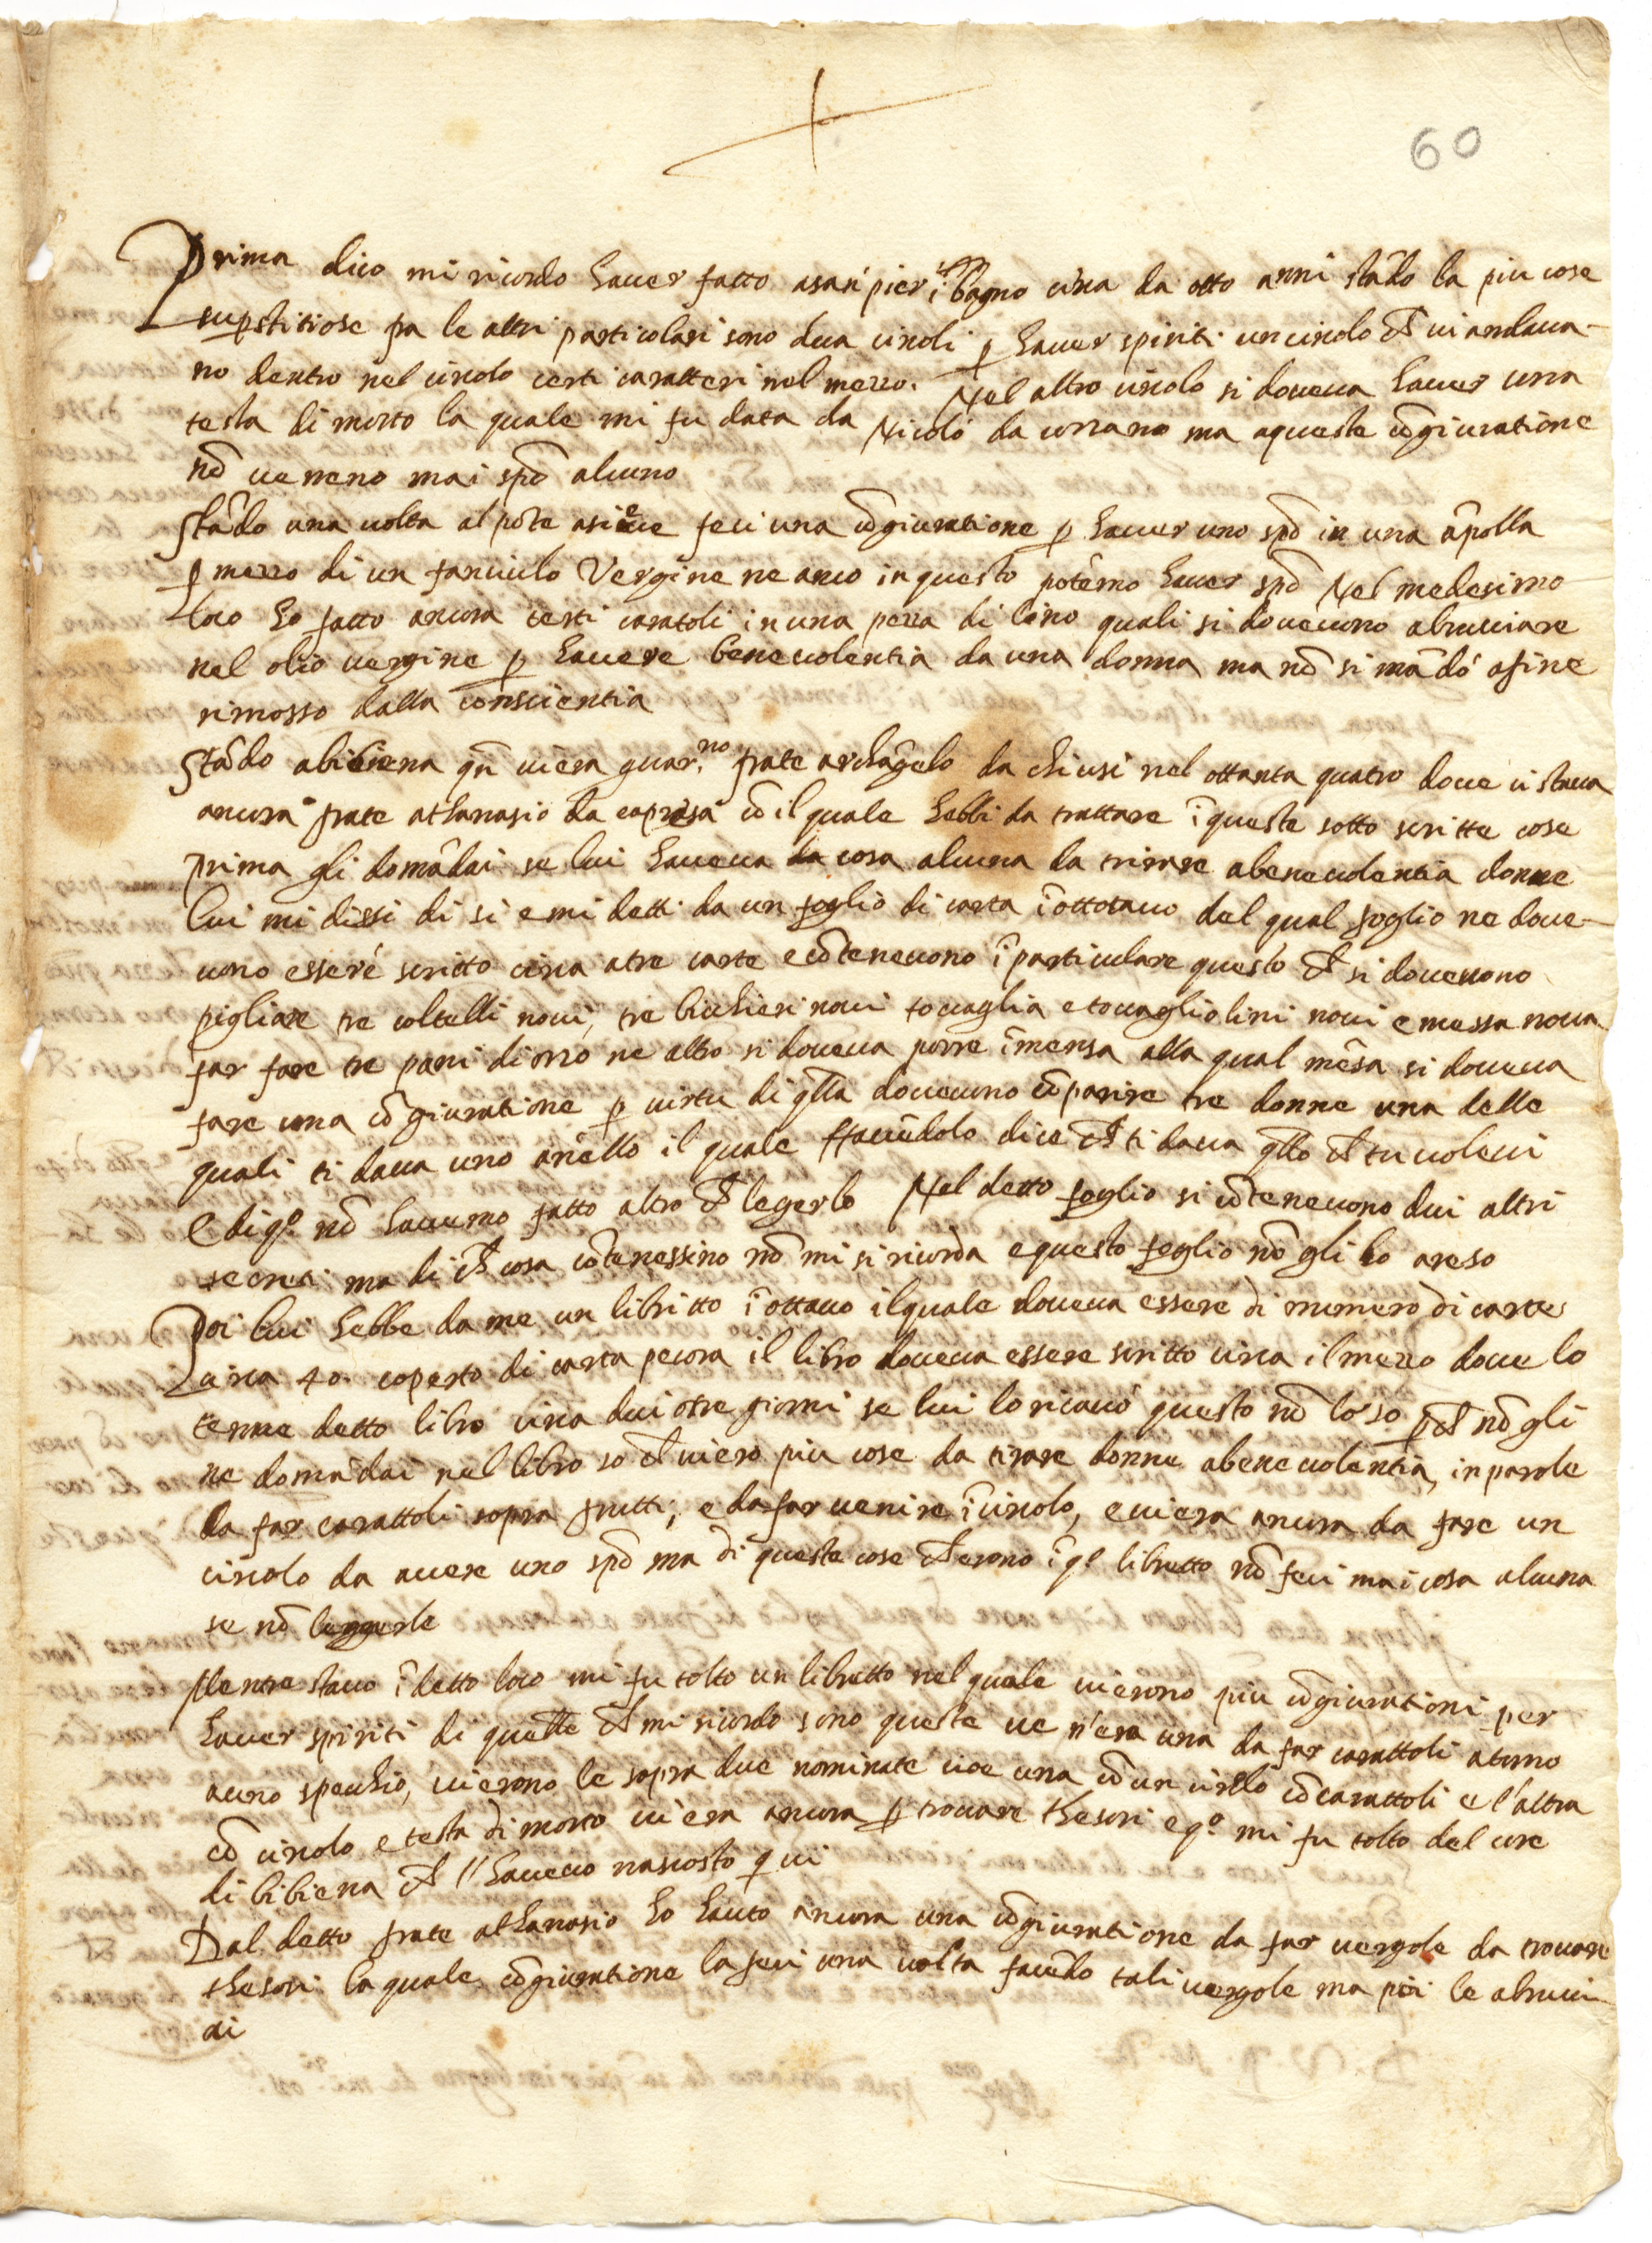 60
Prima dico mi ricordo haver fatto asan pier ĩ bagno circa da otto anni stãdo la piu cose
supstitiose fra le altri particolari sono dua circoli p haver spiriti un circolo ch vi andava-
no dentro nel circolo certi caratteri nel mezzo. Nel altro circolo si doveva haver una
testa di morto la quale mi fu data da Nicolò da corzano ma aqueste cõgiuratione
nõ veneno mai spõ alcuno
Stãdo una volta al põte asieve feci una cõgiuratione p haver uno spõ in una ãpolla
p mezzo di un fanciulo Vergine ne anco in questo potẽmo haver spõ Nel medesimo
loco ho fatto ancora certi caratoli in una pezza di lino quali si dovevono abrucciare
nel olio vergine p havere benevolentia da una donna ma nõ si mãdò afine
rimosso dalla conscientia
Stãdo abibiena qñ viera guar.no frate archãgelo da chiusi nel ottanta quatro dove vi stava
ancora frate athanasio da capresa cõ il quale hebbi da trattare ĩ queste sotto scritte cose
prima gli domãdai se lui haveva cosa alcuna da tirare abenevolentia donne
lui mi dissi di si e mi detti da un foglio di carta ĩ ottavo del qual foglio ne dove-
vono esserè scritto circa atre carte e cõtenevono ĩ particulare questo ch si dovevono
pigliare tre coltelli novi, tre bichieri novi tovaglia e tovagliolini novi e messa nova
far fare tre pani di orzo ne altro si doveva porre ĩ mensa alla qual mẽsa si doveva
fare una cõgiuratione p virtu di qlla dovevono cõparire tre donne una delle
quali ti dava uno anello il quale stacẽdolo dice ch ti dava qllo ch tu volevi
e di qo nõ havemo fatto altro ch legerlo Nel detto foglio si cõtenevono dui altri
secreti ma di ch cosa cõtenessino nõ mi si ricorda e questo foglio nõ gli ho areso
Poi lui hebbe da me un libritto ĩ ottavo il quale doveva essere di numero di carte
circa 40. coperto di carta pecora il libro doveva essere scritto circa il mezzo dove lo
tenne detto libro circa dui otre giorni se lui lo ricavò questo nõ lo so pch nõ gli
ne domãdai nel libro so ch viero piu cose da tirare donne abenevolentia, in parole
da far carattoli sopra frutti, e da far venire ĩ circolo, e viera ancora da fare un
circolo da avere uno spõ ma di queste cose ch erono ĩ qo libretto nõ feci mai cosa alcuna
se nõ leggerle
Mentre stavo ĩ detto loco mi fu tolto un libretto nel quale vierono piu cõgiurationi per
haver spiriti di quelle ch mi ricordo sono queste ve n'era una da far carattoli atorno
auno spechio, vierono le sopra due nominate cioe una cõ un circolo cõ carattoli e l'altra
cõ circolo e testa di morto vi era ancora p trovare thesori e qo. mi fu tolto del core
di bibiena ch l'havevo nascosto qui
Dal detto frate athanasio ho hauto ancora una cõgiuratione da far vergole da trovare
thesori la quale cõgiuratione la feci una volta facẽdo tali vergole ma poi le abrucci-
ai